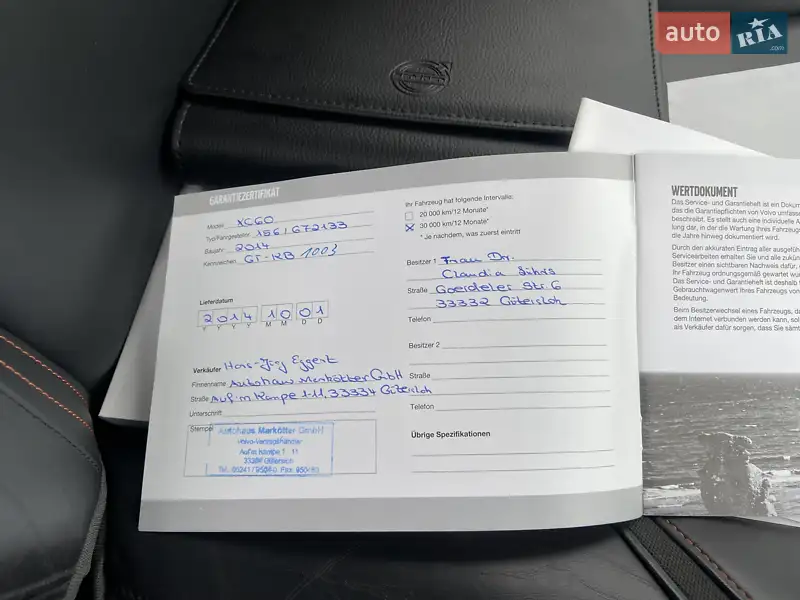 auto RIA .com
GARANTIEZERTIFIKAT
Modell XC60
Typ/Fahrgestellnr. 156/672133
Baujahr 2014
Kennzeichen GT-RB 1003
Lieferdatum
2014 10 01
Y Y Y Y M M D D
Verkäufer Hans-Jörg Eggert
Firmenname Autohaus Markötter GmbH
Straße Auf'm Kampe 1-11, 33334 Gütersloh
Unterschrift
Stempel
Autohaus Markötter GmbH
Volvo-Vertragshändler
Auf'm Kampe 1 - 11
33334 Gütersloh
Ihr Fahrzeug hat folgende Intervalle:
20 000 km/12 Monate*
X 30 000 km/12 Monate*
* Je nachdem, was zuerst eintritt
Besitzer 1 Frau Dr.
Claudia
Straße Goerdeler Str. 6
33332 Gütersloh
Telefon
Besitzer 2
Straße
Telefon
Übrige Spezifikationen
WERTDOKUMENT
Das Service- und Garantieheft ist ein Dokum
das die Garantiepflichten von Volvo umfasse
beschreibt. Es stellt auch eine individuelle A
lung dar, in der die Wartung Ihres Fahrzeugs
die Jahre hinweg dokumentiert wird.
Durch den akkuraten Eintrag aller ausgefüh
Servicearbeiten erhalten Sie und alle zukün
Besitzer einen sichtbaren Nachweis dafür,
Ihr Fahrzeug ordnungsgemäß gewartet wu
Das Service- und Garantieheft ist deshalb f
Gebrauchtwagenwert Ihres Fahrzeugs von
Bedeutung.
Beim Besitzerwechsel eines Fahrzeugs, da
dem Internet verbunden werden kann, sol
als Verkäufer dafür sorgen, dass Sie sämt